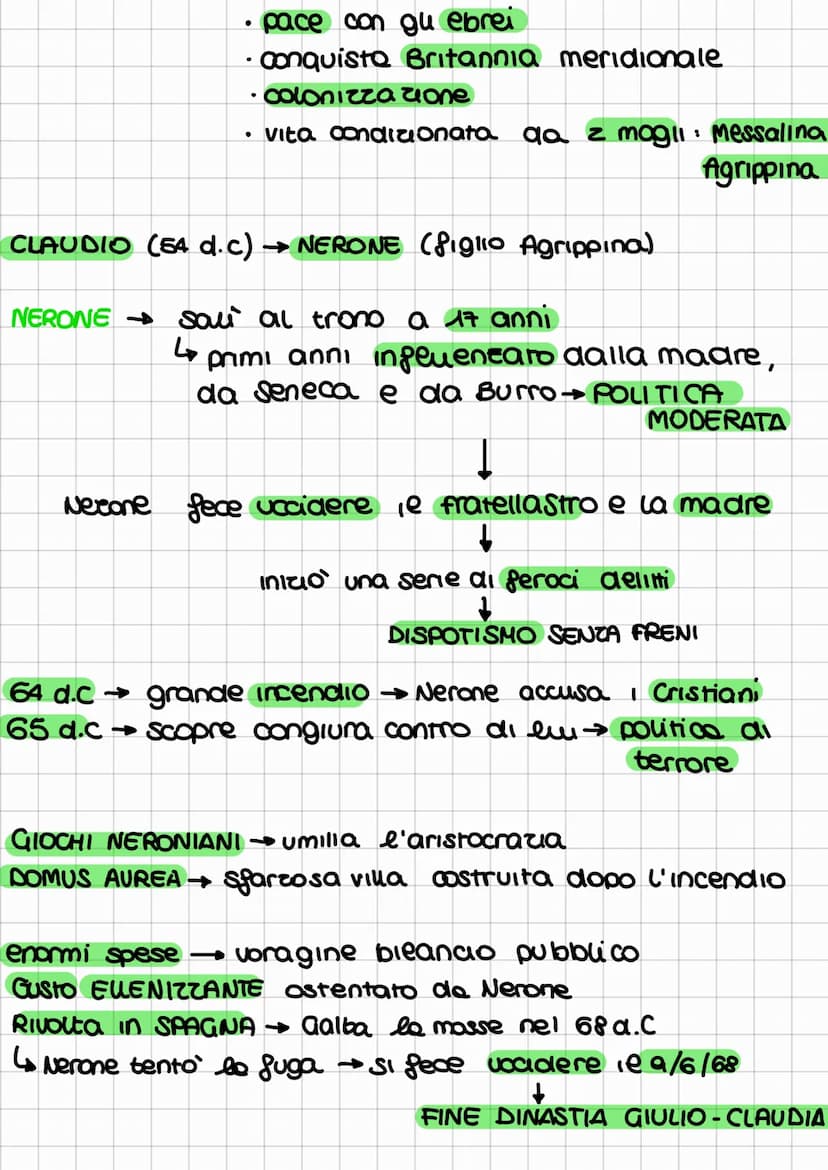 • pace con gli ebrei
• conquista Britannia meridionale
• colonizzazione
• vita condizionata da 2 mogli: Messalina
Agrippina
CLAUDIO (54 d.c) → NERONE (figlio Agrippina)
NERONE → salì al trono a 17 anni
↳ primi anni influenzato dalla madre,
da Seneca e da Burro → POLITICA
MODERATA
↓
Nerone fece uccidere il fratellastro e la madre
↓
iniziò una serie di feroci delitti
↓
DISPOTISMO SENZA FRENI
64 d.c → grande incendio → Nerone accusa i Cristiani
65 d.c → scopre congiura contro di lui → politica di
terrore
GIOCHI NERONIANI → umilia l'aristocrazia
DOMUS AUREA → sfarzosa villa costruita dopo l'incendio
enormi spese → voragine bilancio pubblico
Gusto ELLENIZZANTE ostentato da Nerone
RIVOLTA in SPAGNA → Galba la mosse nel 68 d.C
↳ Nerone tentò la fuga → si fece uccidere il 9/6/68
↓
FINE DINASTIA GIULIO-CLAUDIA